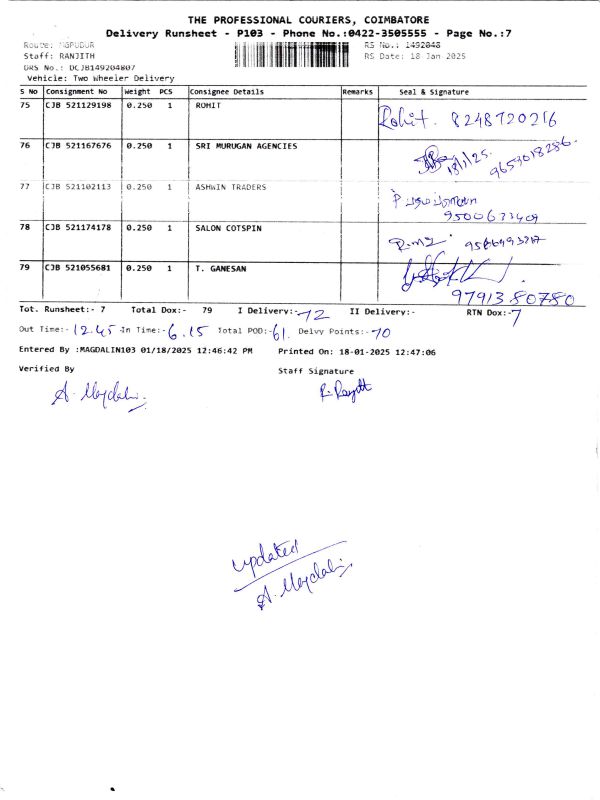 THE PROFESSIONAL COURIERS, COIMBATORE
Delivery Runsheet - P103 - Phone No.:0422-3505555 - Page No.:7
Route: MGPUDUR RS No.: 1492048
Staff: RANJITH RS Date: 18 Jan 2025
DRS No.: DCJB149204807
Vehicle: Two Wheeler Delivery
S No Consignment No Weight PCS Consignee Details Remarks Seal & Signature
75 CJB 521129198 0.250 1 ROHIT Rohit. 8248720216
76 CJB 521167676 0.250 1 SRI MURUGAN AGENCIES 18/1/25. 9653018286.
77 CJB 521102113 0.250 1 ASHWIN TRADERS 9500673409
78 CJB 521174178 0.250 1 SALON COTSPIN
79 CJB 521055681 0.250 1 T. GANESAN 9791380780
Tot. Runsheet:- 7 Total Dox:- 79 I Delivery:-72 II Delivery:- RTN Dox:-7
Out Time:- 12.45 In Time:- 6.15 Total POD:- 61. Delvy Points:- 70
Entered By :MAGDALIN103 01/18/2025 12:46:42 PM Printed On: 18-01-2025 12:47:06
Verified By Staff Signature
updated